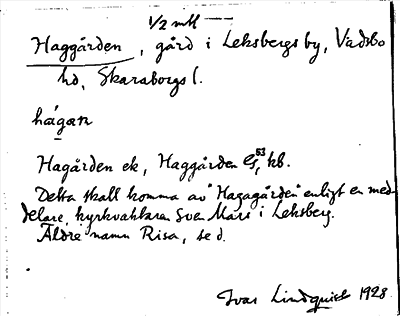 1/2 mtl
Haggården, gård i Leksbergs by, Vadsbo
hd, Skaraborgs l.
hágan
Hagården ek, Haggården GS, 53 kb.
Detta skall komma av "Hagagården" enligt en med-
delare, kyrkvaktaren Sven Mårs i Leksberg.
Äldre namn Risa, se d.
Ivar Lindquist 1928